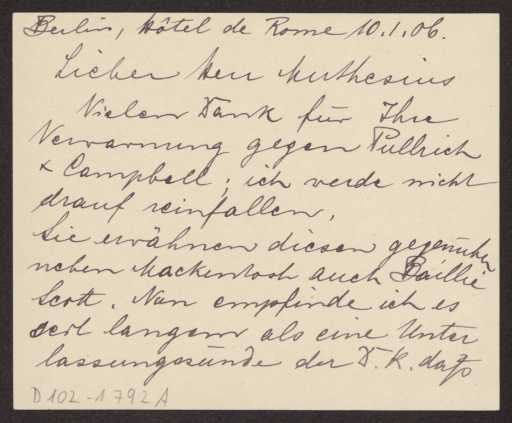 Berlin, Hôtel de Rome 10.1.06.
Lieber Herr Muthesius
Vielen Dank für Ihre
Verwarnung gegen Pullrich
& Campbell; ich werde nicht
drauf reinfallen.
Sie erwähnen diesen gegenüber
neben Mackentosh auch Baillie
Scott. Nun empfinde ich es
seit langem als eine Unter
lassungssünde der D.K. daſs
D 102-1792A